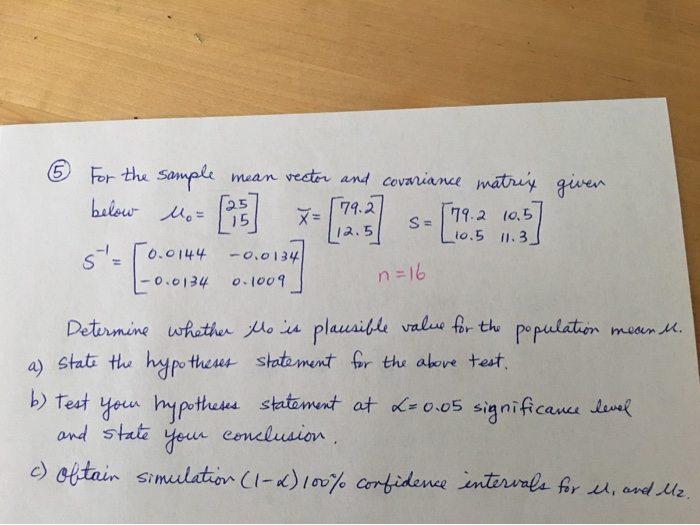 ⑤ For the sample mean vector and covariance matrix given
below μ₀ = [25 15] x̄ = [79.2 12.5] S = [79.2 10.5 10.5 11.3]
S⁻¹ = [0.0144 -0.0134 -0.0134 0.1009] n = 16
Determine whether μ₀ is plausible value for the population mean μ.
a) State the hypotheses statement for the above test.
b) Test your hypotheses statement at α = 0.05 significance level
and state your conclusion.
c) Obtain simulation (1-α)100% confidence intervals for μ₁ and μ₂.